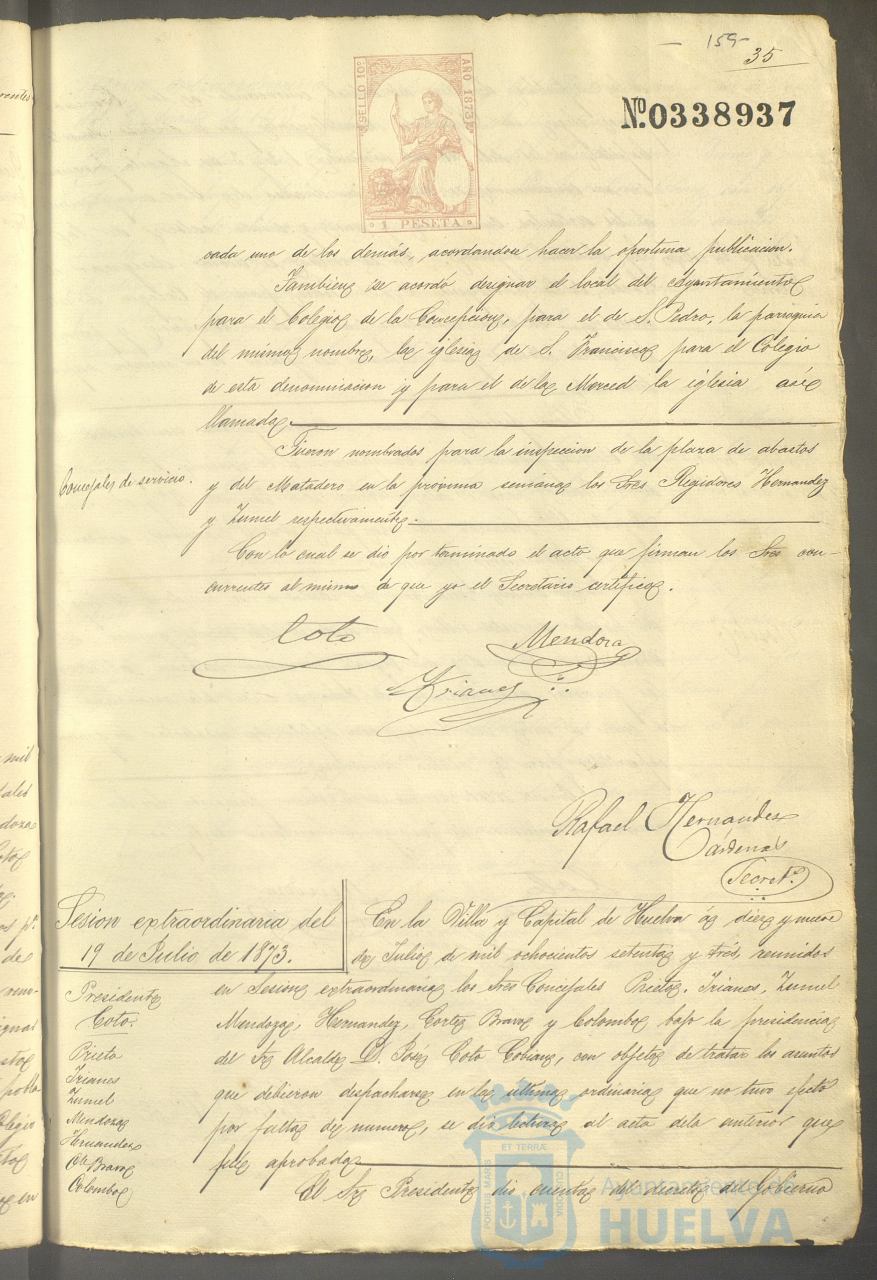 -159-
35
SELLO 10º
AÑO 1873
1 PESETA
Nº 0338937
cada uno de los demás, acordandose hacer la oportuna publicacion.
Tambien se acordó designar el local del Ayuntamiento
para el Colegio de la Concepcion, para el de S. Pedro, la parroquia
del mismo nombre, la iglesia de S. Francisco para el Colegio
de esta denominacion y para el de la Merced la iglesia asi
llamada
Concejales de servicio.
Fueron nombrados para la inspeccion de la plaza de abastos
y del Matadero en la proxima semana los Sres Regidores Hernandez
y Zumel respectivamente.
Con lo cual se dio por terminado el acto que firman los Sres con-
currentes al mismo de que yo el Secretario certifico.
Coto
Mendoza
Trianes
Rafael Hernandez
Cárdenas
Secretº.
Sesion extraordinaria del
19 de Julio de 1873.
Presidente
Coto.
Prieto
Trianes
Zumel
Mendoza
Hernandez
Cte Bravo
Colombo
En la Villa y Capital de Huelva á diez y nueve
de Julio de mil ochocientos setenta y tres, reunidos
en Sesion extraordinaria los Sres Concejales Prieto, Trianes, Zumel
Mendoza, Hernandez, Cortes Bravo y Colombo, bajo la presidencia
del Sr Alcalde D. José Coto Cobian, con objeto de tratar los asuntos
que debieron despacharse en la última ordinaria que no tuvo efecto
por falta de numero, se dió lectura al acta dela anterior que
fué aprobada
El Sr Presidente dio cuenta del decreto del Gobierno
ET TERRÆ
PORTUS MARIS
CUSTODIA
Ayuntamiento de
HUELVA